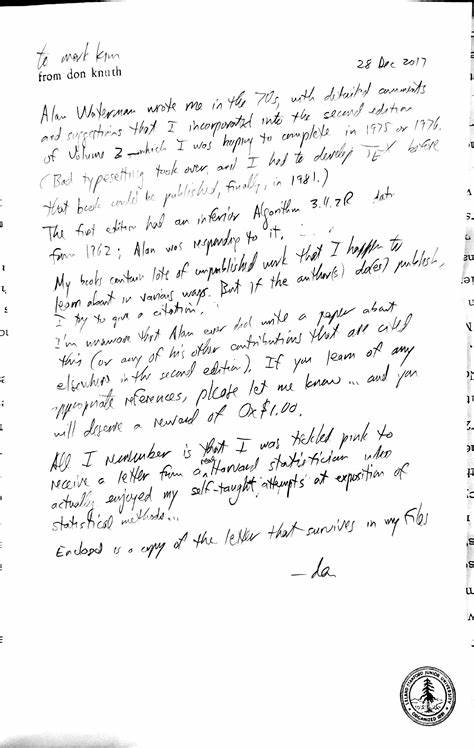 to mark kim
from don knuth
28 Dec 2017
Alan Waterman wrote me in the 70s, with detailed comments
and suggestions that I incorporated into the second edition
of Volume 2 — which I was hoping to complete in 1975 or 1976.
(Bad typesetting took over, and I had to develop TEX before
that book could be published, finally, in 1981.)
The first edition had an inferior Algorithm 3.4.2R
from 1962; Alan was responding to it.
My books contain lots of unpublished work that I happen to
learn about in various ways. But if the author(s) do(es) publish,
I try to give a citation.
I'm unaware that Alan ever did write a paper about
this (or any of his other contributions that are cited
elsewhere in the second edition). If you learn of any
appropriate references, please let me know ... and you
will deserve a reward of 0x$1.00.
All I remember is that I was tickled pink to
receive a letter from a real Harvard statistician who
actually enjoyed my self-taught attempts at exposition of
statistical methods...
Enclosed is a copy of the letter that survives in my files
LELAND STANFORD JUNIOR UNIVERSITY
ORGANIZED 1891